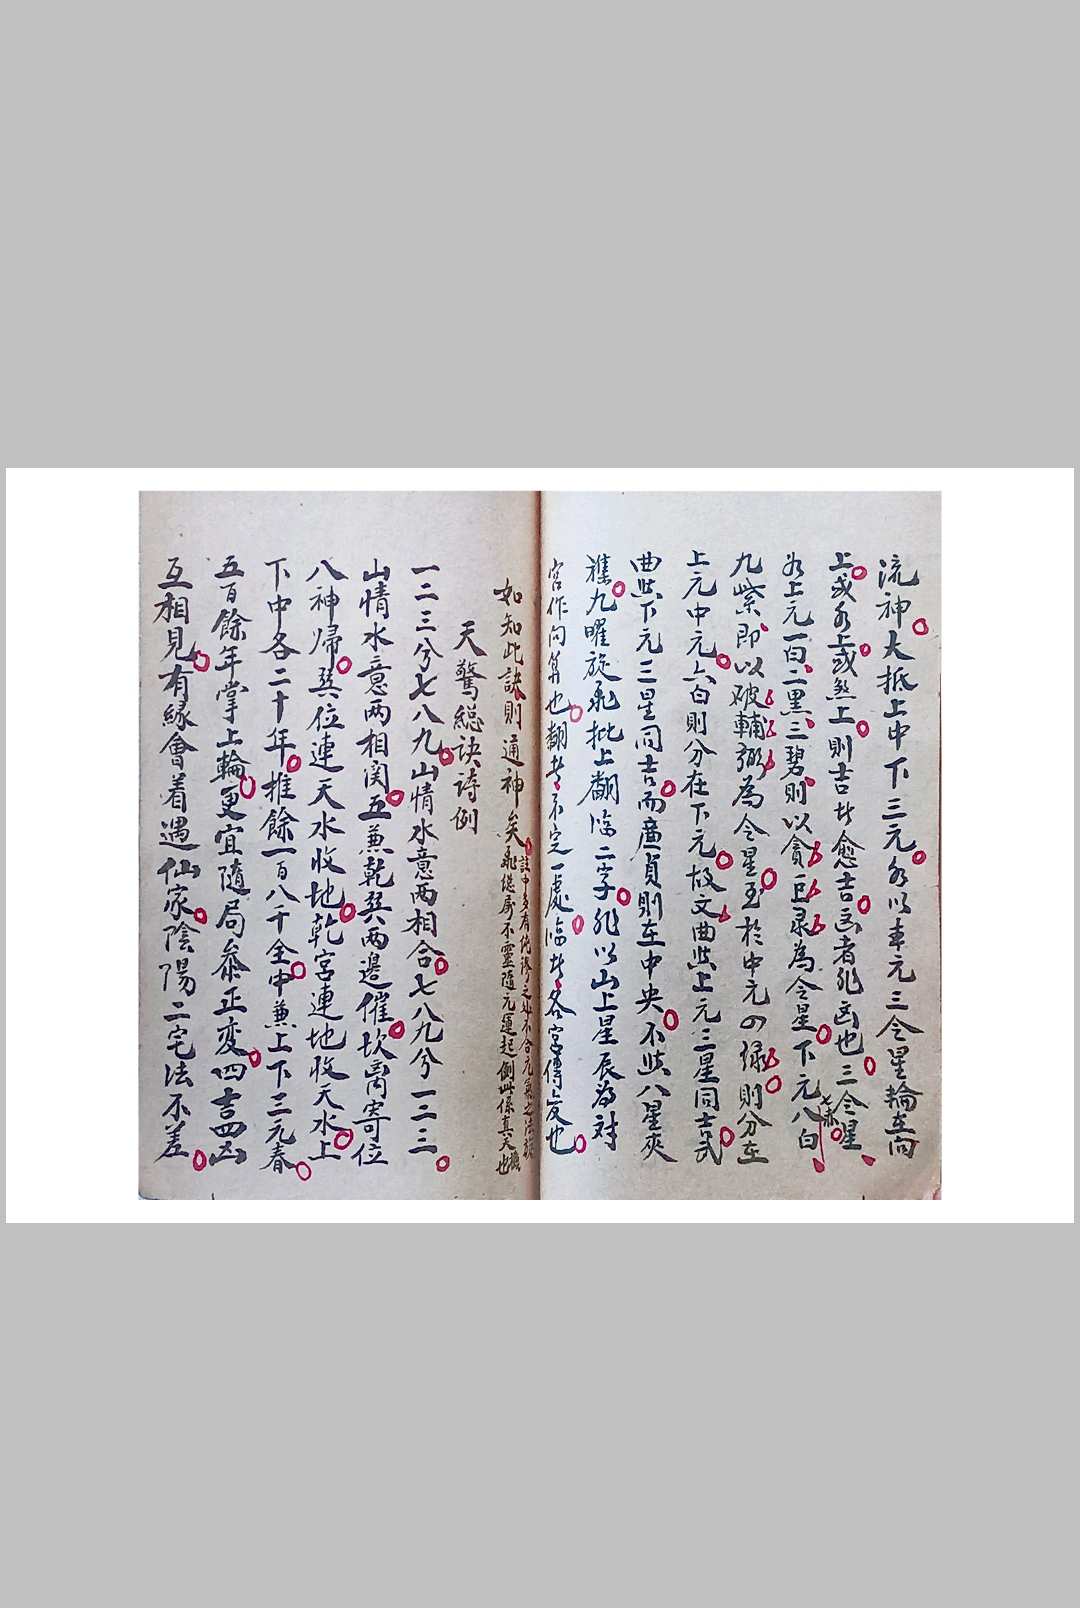 流神大抵上中下三元必以本元三令星輪在向
上或水上或煞上則吉者愈吉凶者非凶也三令星
如上元一白二黑三碧則以貪巨录為令星下元八白
七赤
九紫即以破輔弼為令星至於中元四綠則分在
上元中元六白則分在下元故文曲與上元三星同吉武
曲與下元三星同吉而廉貞則在中央不與八星夾
雜九曜旋飛批上翻临二字非以山上星辰為对
宮作向算也翻者不定一處临者各宮傳变也
如知此訣則通神矣
註中多有
飛従房不靈随元運起例此係真天機也
天驚総訣詩例
一二三兮七八九山情水意两相合七八九兮一二三
山情水意两相関五兼乾巽两邊催坎离寄位
八神歸巽位連天水收地乾宮連地收天水上
下中各二十年推餘一百八十全中兼上下三元春
五百餘年掌上輪更宜随局參正变四吉四凶
互相見有緣會着遇仙家陰陽二宅法不差